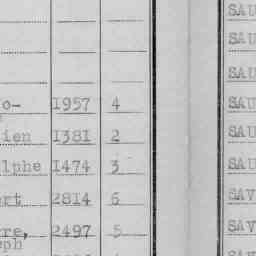 SAU
SAU
SAU
o- 1957 4 SAU
ien 1381 2 SAU
lphe 1474 3 SAU
rt 2814 6 SAV
re, 2497 5 SAV
ph